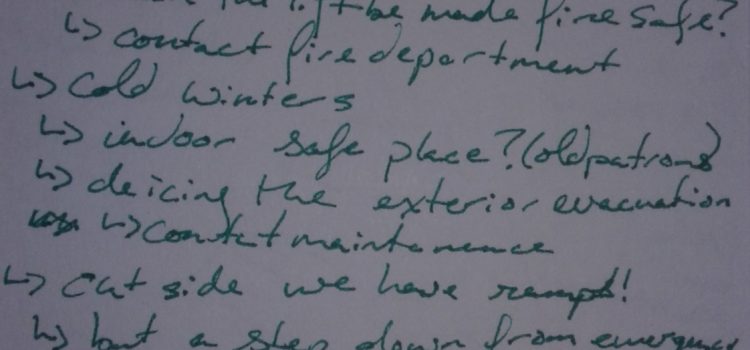 the lift be made fire safe?
↳ contact fire department
↳ cold winters
↳ indoor safe place? (old patrons)
↳ deicing the exterior evacuation
↳ contact maintenence
↳ out side we have ramps!
↳ but a step down from emergency